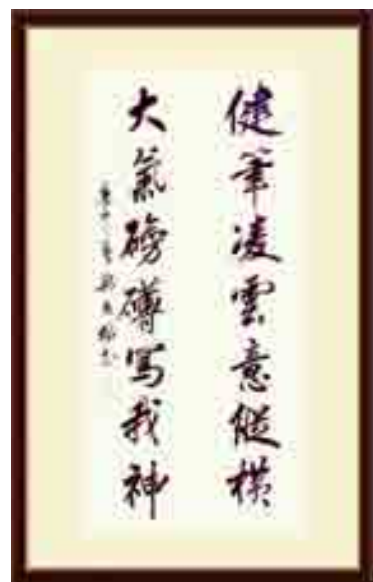 健筆凌雲意縱橫
大氣磅礴写我神